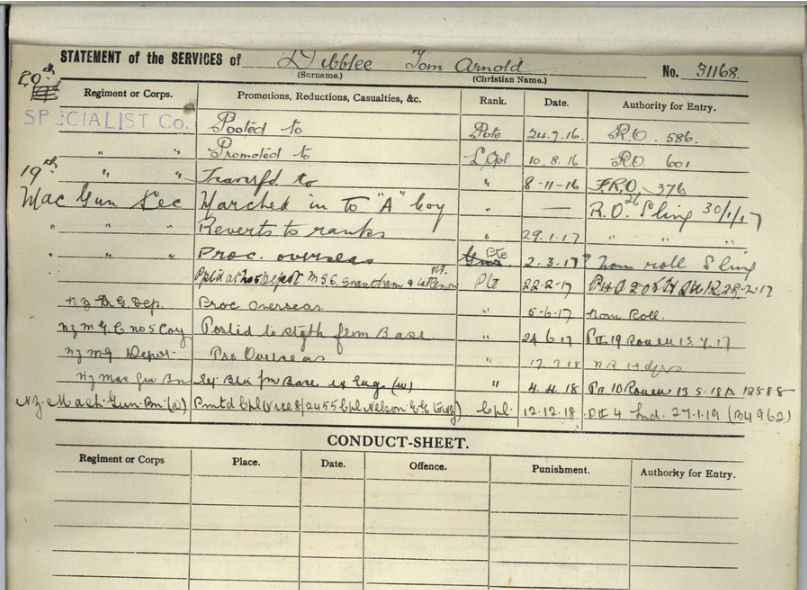 STATEMENT of the SERVICES of Dibblee Tom Arnold No. 31168.
(Surname.) (Christian Name.)
20th
Regiment or Corps. Promotions, Reductions, Casualties, &c. Rank. Date. Authority for Entry.
SPECIALIST Co. Posted to Pvte 24.7.16. R.O. 586.
" " Promoted to L/Cpl 10.8.16 RO 601
19th " " Transfd to " 8-11-16 F.R.O. 376
Mac Gun Sec Marched in To "A" Coy " — R.O. 26 Sling 30/1/17
" " " Reverts to ranks 29.1.17 " " "
" " " Proc. overseas Pte 2.3.17 Nom roll Sling
Depot M.G.C. Grantham & Pte 22-2-17 28-2-17
N.Z. M.G. Dep. Proc Overseas " 5-6-17 Nom Roll.
NZ M G C No 5 Coy Posted to Stgth from Base " 24 6 17 PII 19 Rouen 13.7.17
NZ MG Depot. Pro Overseas " 17 3 18
NZ Mac Gun Bn fm Base ex Eng. (w) " 4.4.18 Pa 10 Rouen 13 5.18
NZ Mach. Gun Bn (a) Pmtd Cpl (vice 8/2455 Cpl Nelson) Cpl. 12.12.18 PII 4 Ind. 27.1.19 (B4962)
CONDUCT-SHEET.
Regiment or Corps Place. Date. Offence. Punishment. Authority for Entry.